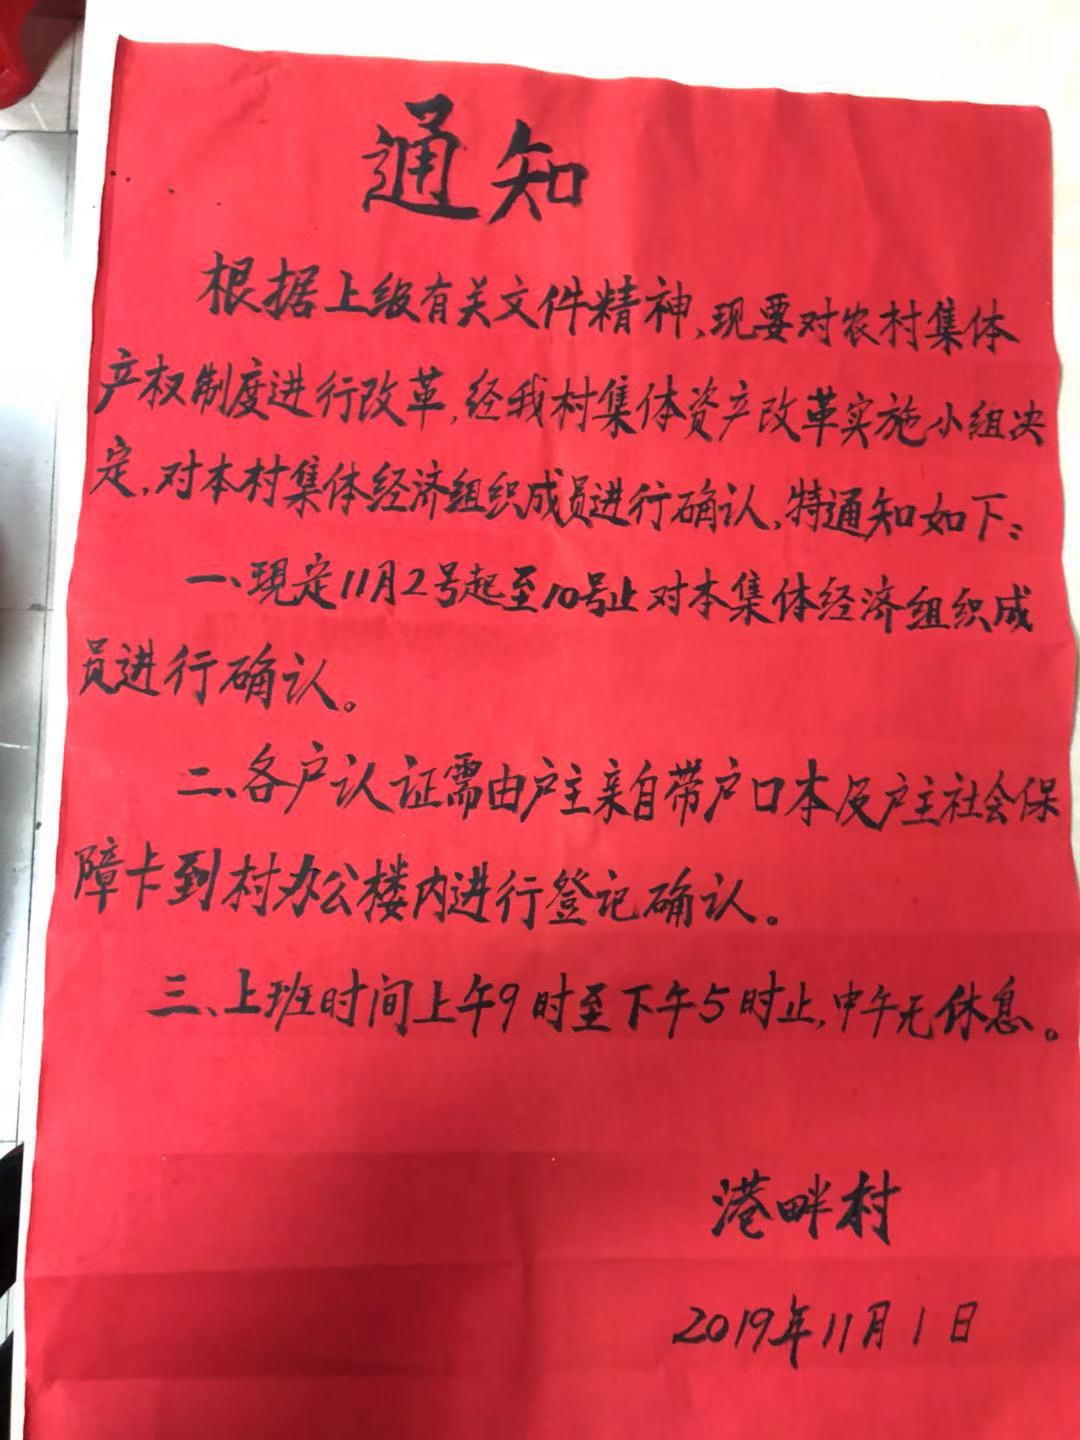 通知
根据上级有关文件精神、现要对农村集体
产权制度进行改革,经我村集体资产改革实施小组决
定,对本村集体经济组织成员进行确认,特通知如下:
一、现定11月2号起至10号止对本集体经济组织成
员进行确认。
二、各户认证需由户主亲自带户口本及户主社会保
障卡到村办公楼内进行登记确认。
三、上班时间上午9时至下午5时止,中午无休息。
港畔村
2019年11月1日